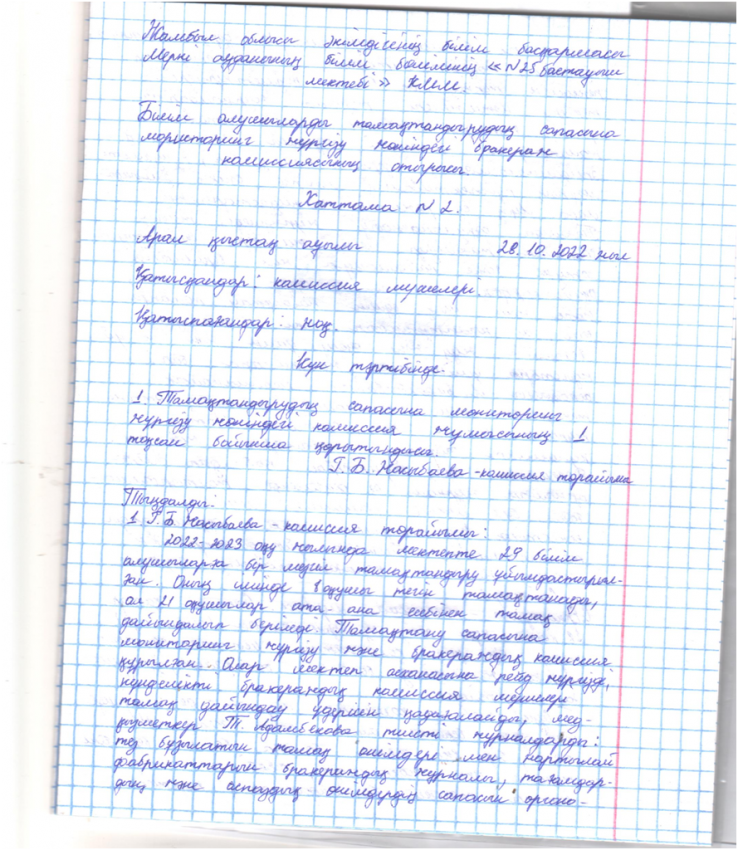 Жамбыл облысы әкімдігінің білім басқармасы
Меркі ауданының білім бөлімінің «N25 бастауыш
мектебі» КММ.
Білім алушыларды тамақтандырудың сапасына
мониторинг жүргізу жөніндегі бракераж
комиссиясының отырысы.
Хаттама N 2.
Арал қыстақ ауылы 28. 10. 2022 жыл
Қатысқандар: комиссия мүшелері.
Қатыспағандар: жоқ.
Күн тәртібінде.
1 Тамақтандырудың сапасына мониторинг
жүргізу жөніндегі комиссия жұмысының 1
тоқсан бойынша қорытындысы.
Г. Б. Насыбаева - комиссия төрайымы
Тыңдалды:
1 Г. Б Насыбаева - комиссия төрайымы:
2022-2023 оқу жылында мектепте 29 білім
алушыларға бір мезгіл тамақтандыру ұйымдастырыл-
ған. Оның ішінде 8 оқушы тегін тамақтанады,
ал 21 оқушылар ата-ана есебінен тамақ
дайындалып беріледі. Тамақтану сапасына
мониторинг жүргізу және бракераждық комиссия
құрылған. Олар мектеп асханасына рейд жүргізді,
күнделікті бракераждық комиссия мүшелері
тамақ дайындау үдерісін қадағалайды, мед-
қызметкер Т. Адамбекова тиісті журналдарды:
тез бұзылатын тамақ өнімдері мен жартылай
фабрикаттарын бракераждық журналы, тағамдар-
дың және аспаздық өнімдердің сапасын органо-